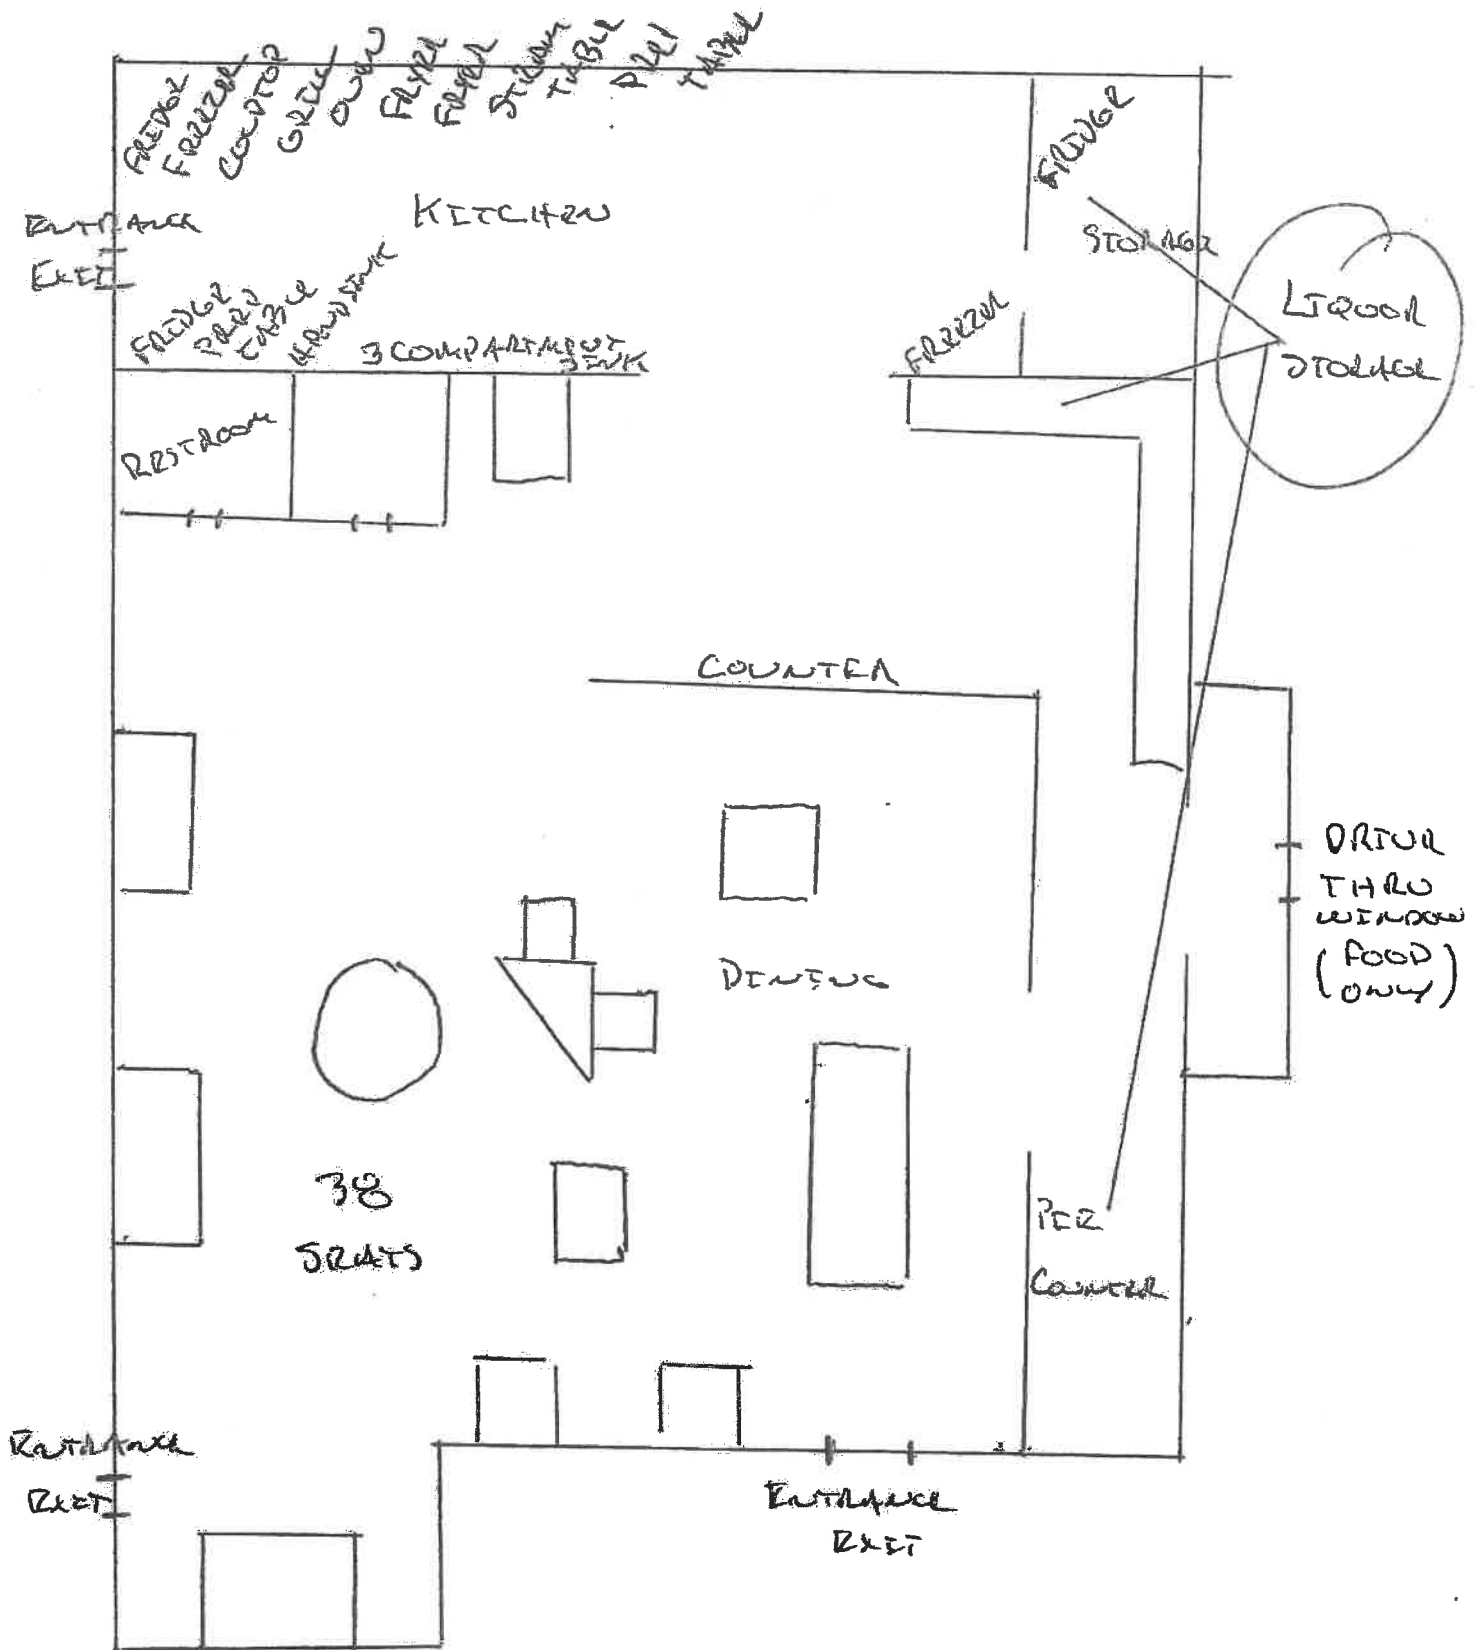 FRIDGE
FREEZER
COLDTOP
GRILL
OVEN
FRYER
FRYER
STEAM
TABLE
PREP
TABLE
FRIDGE
ENTRANCE
EXIT
KITCHEN
STORAGE
LIQUOR
STORAGE
FRIDGE
PREP
TABLE
HANDSINK
3 COMPARTMENT
SINK
FREEZER
RESTROOM
COUNTER
DRIVE
THRU
WINDOW
(FOOD
ONLY)
DINING
38
SEATS
PIE
COUNTER
ENTRANCE
EXIT
ENTRANCE
EXIT